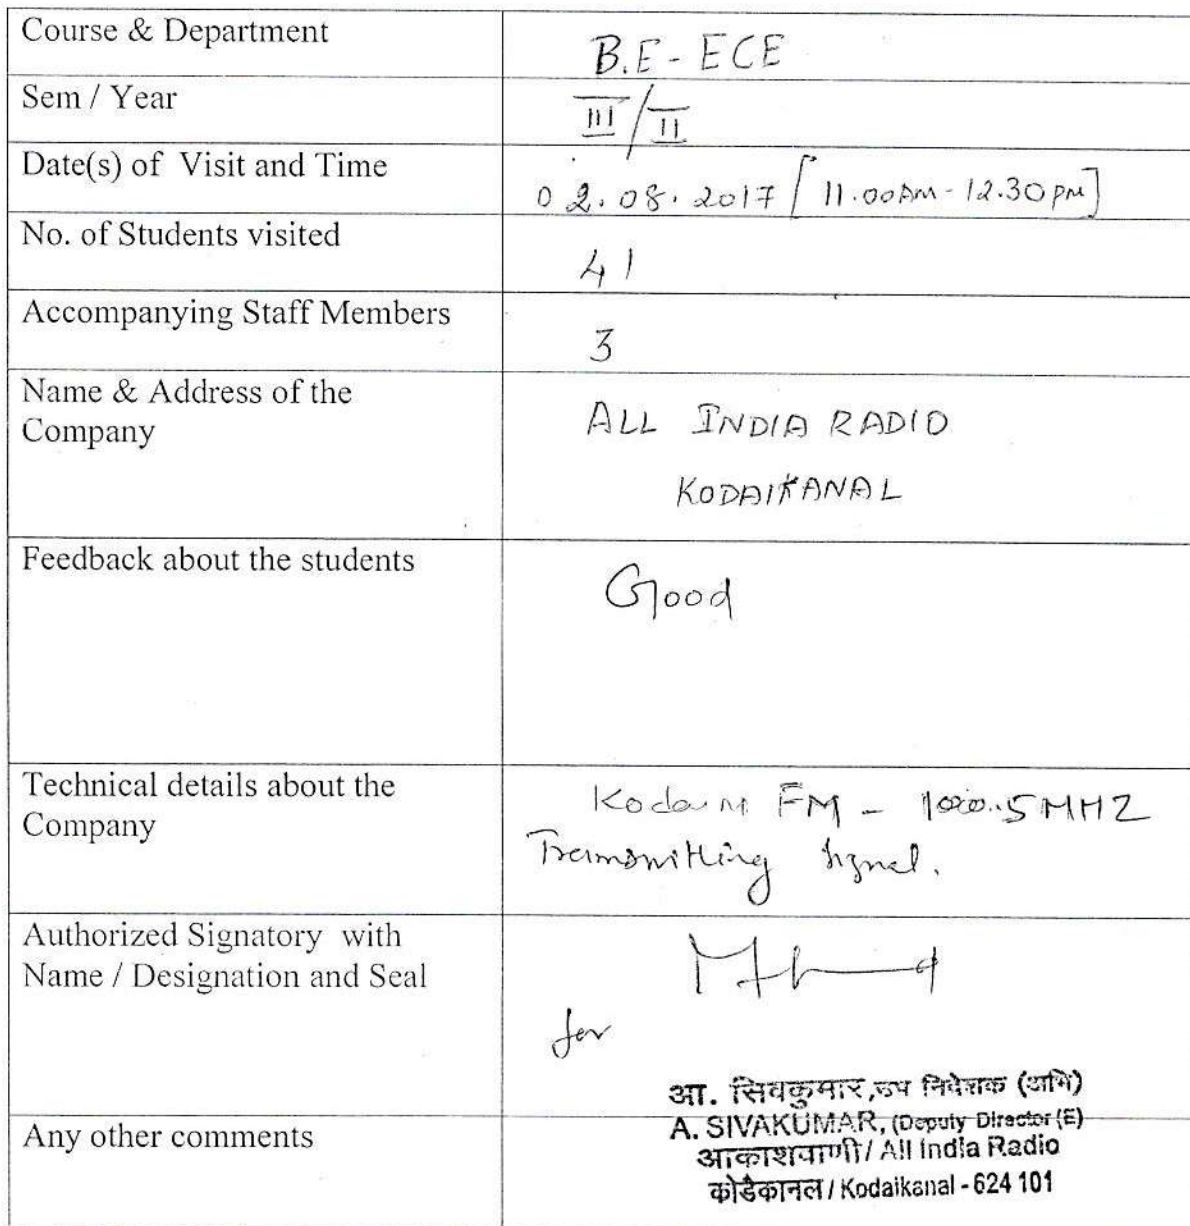 Course & Department
B.E - ECE
Sem / Year
III / II
Date(s) of Visit and Time
02.08.2017 [11.00AM - 12.30PM]
No. of Students visited
41
Accompanying Staff Members
3
Name & Address of the
Company
ALL INDIA RADIO
KODAIKANAL
Feedback about the students
Good
Technical details about the
Company
FM - 100.5 MHZ
Transmitting Signal.
Authorized Signatory with
Name / Designation and Seal
for
आ. सिवकुमार,उप निदेशक (अभि)
A. SIVAKUMAR, (Deputy Director (E)
आकाशवाणी / All India Radio
कोडैकानल / Kodaikanal - 624 101
Any other comments